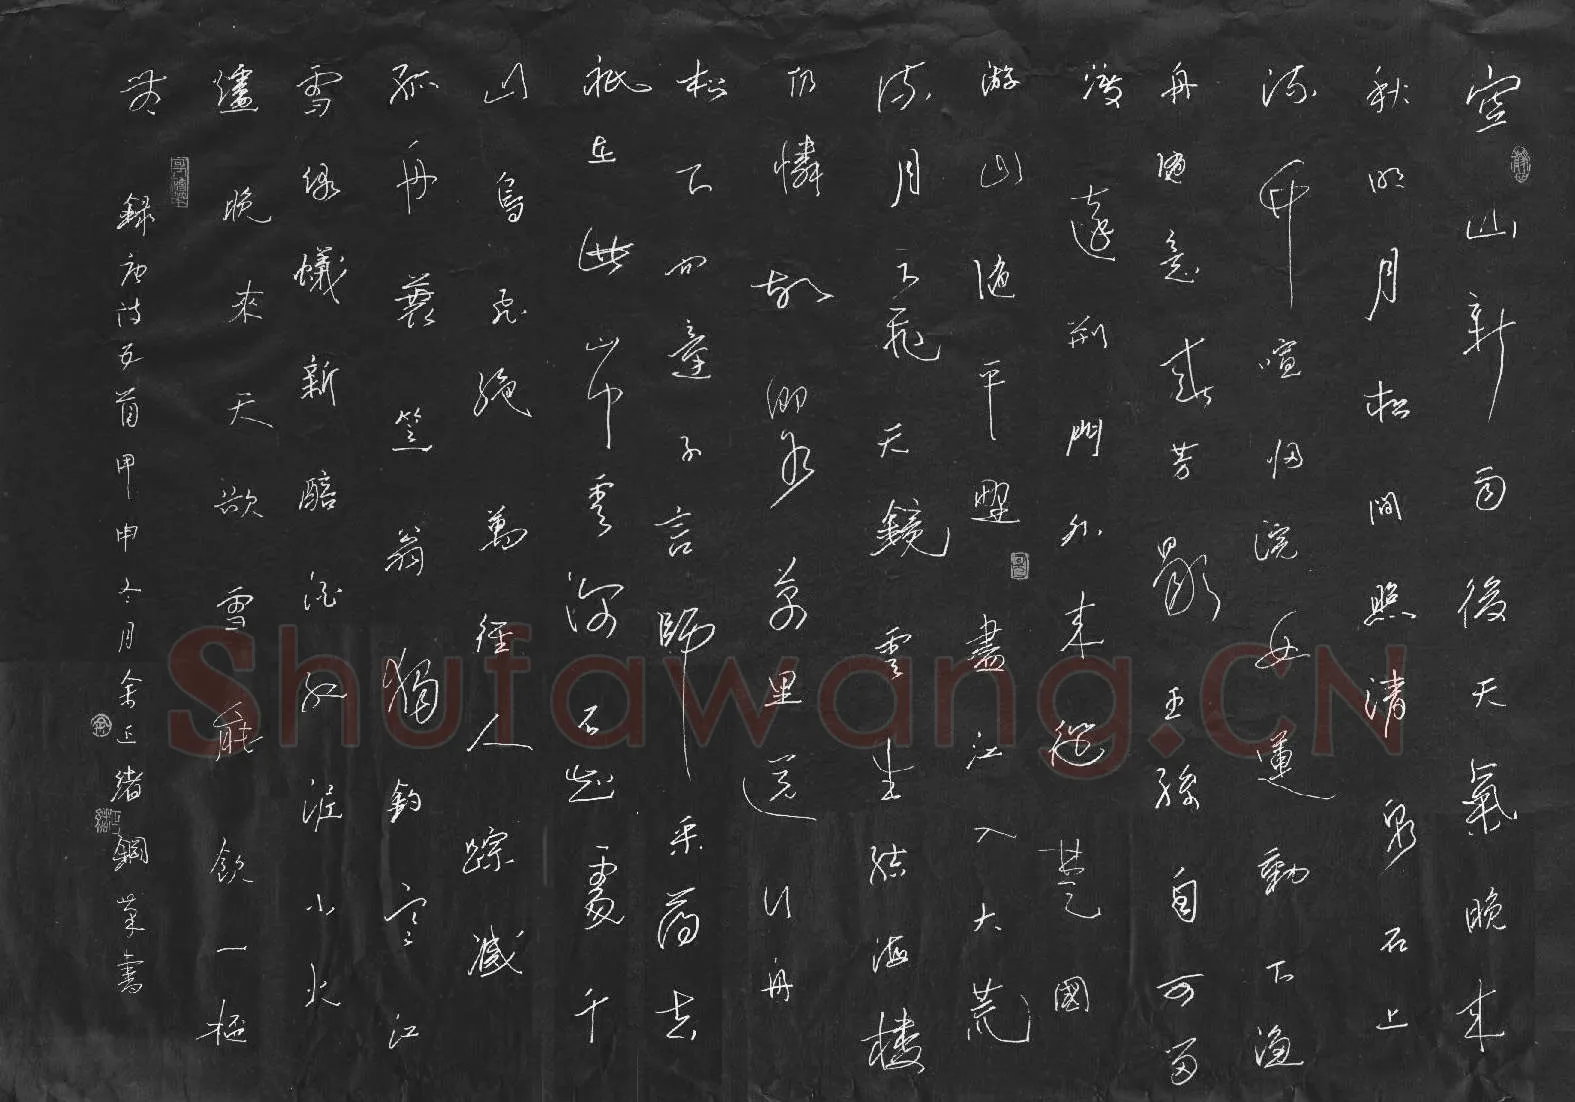 空山新雨後天氣晚来
秋明月松間照清泉石上
流竹喧归浣女蓮動下漁
舟隨意春芳歇王孫自可留
渡遠荊門外来從楚國
游山随平野盡江入大荒
流月下飛天鏡雲生結海樓
仍憐故鄉水萬里送行舟
松下问童子言師采药去
祇在此山中雲深不知處千
山鳥飛絕萬徑人踪滅
孤舟蓑笠翁獨釣寒江
雪綠蟻新醅酒紅泥小火
爐晚來天欲雪能飲一杯
無
錄唐诗五首甲申冬月余正緒鋼筆書
Shufawang.CN